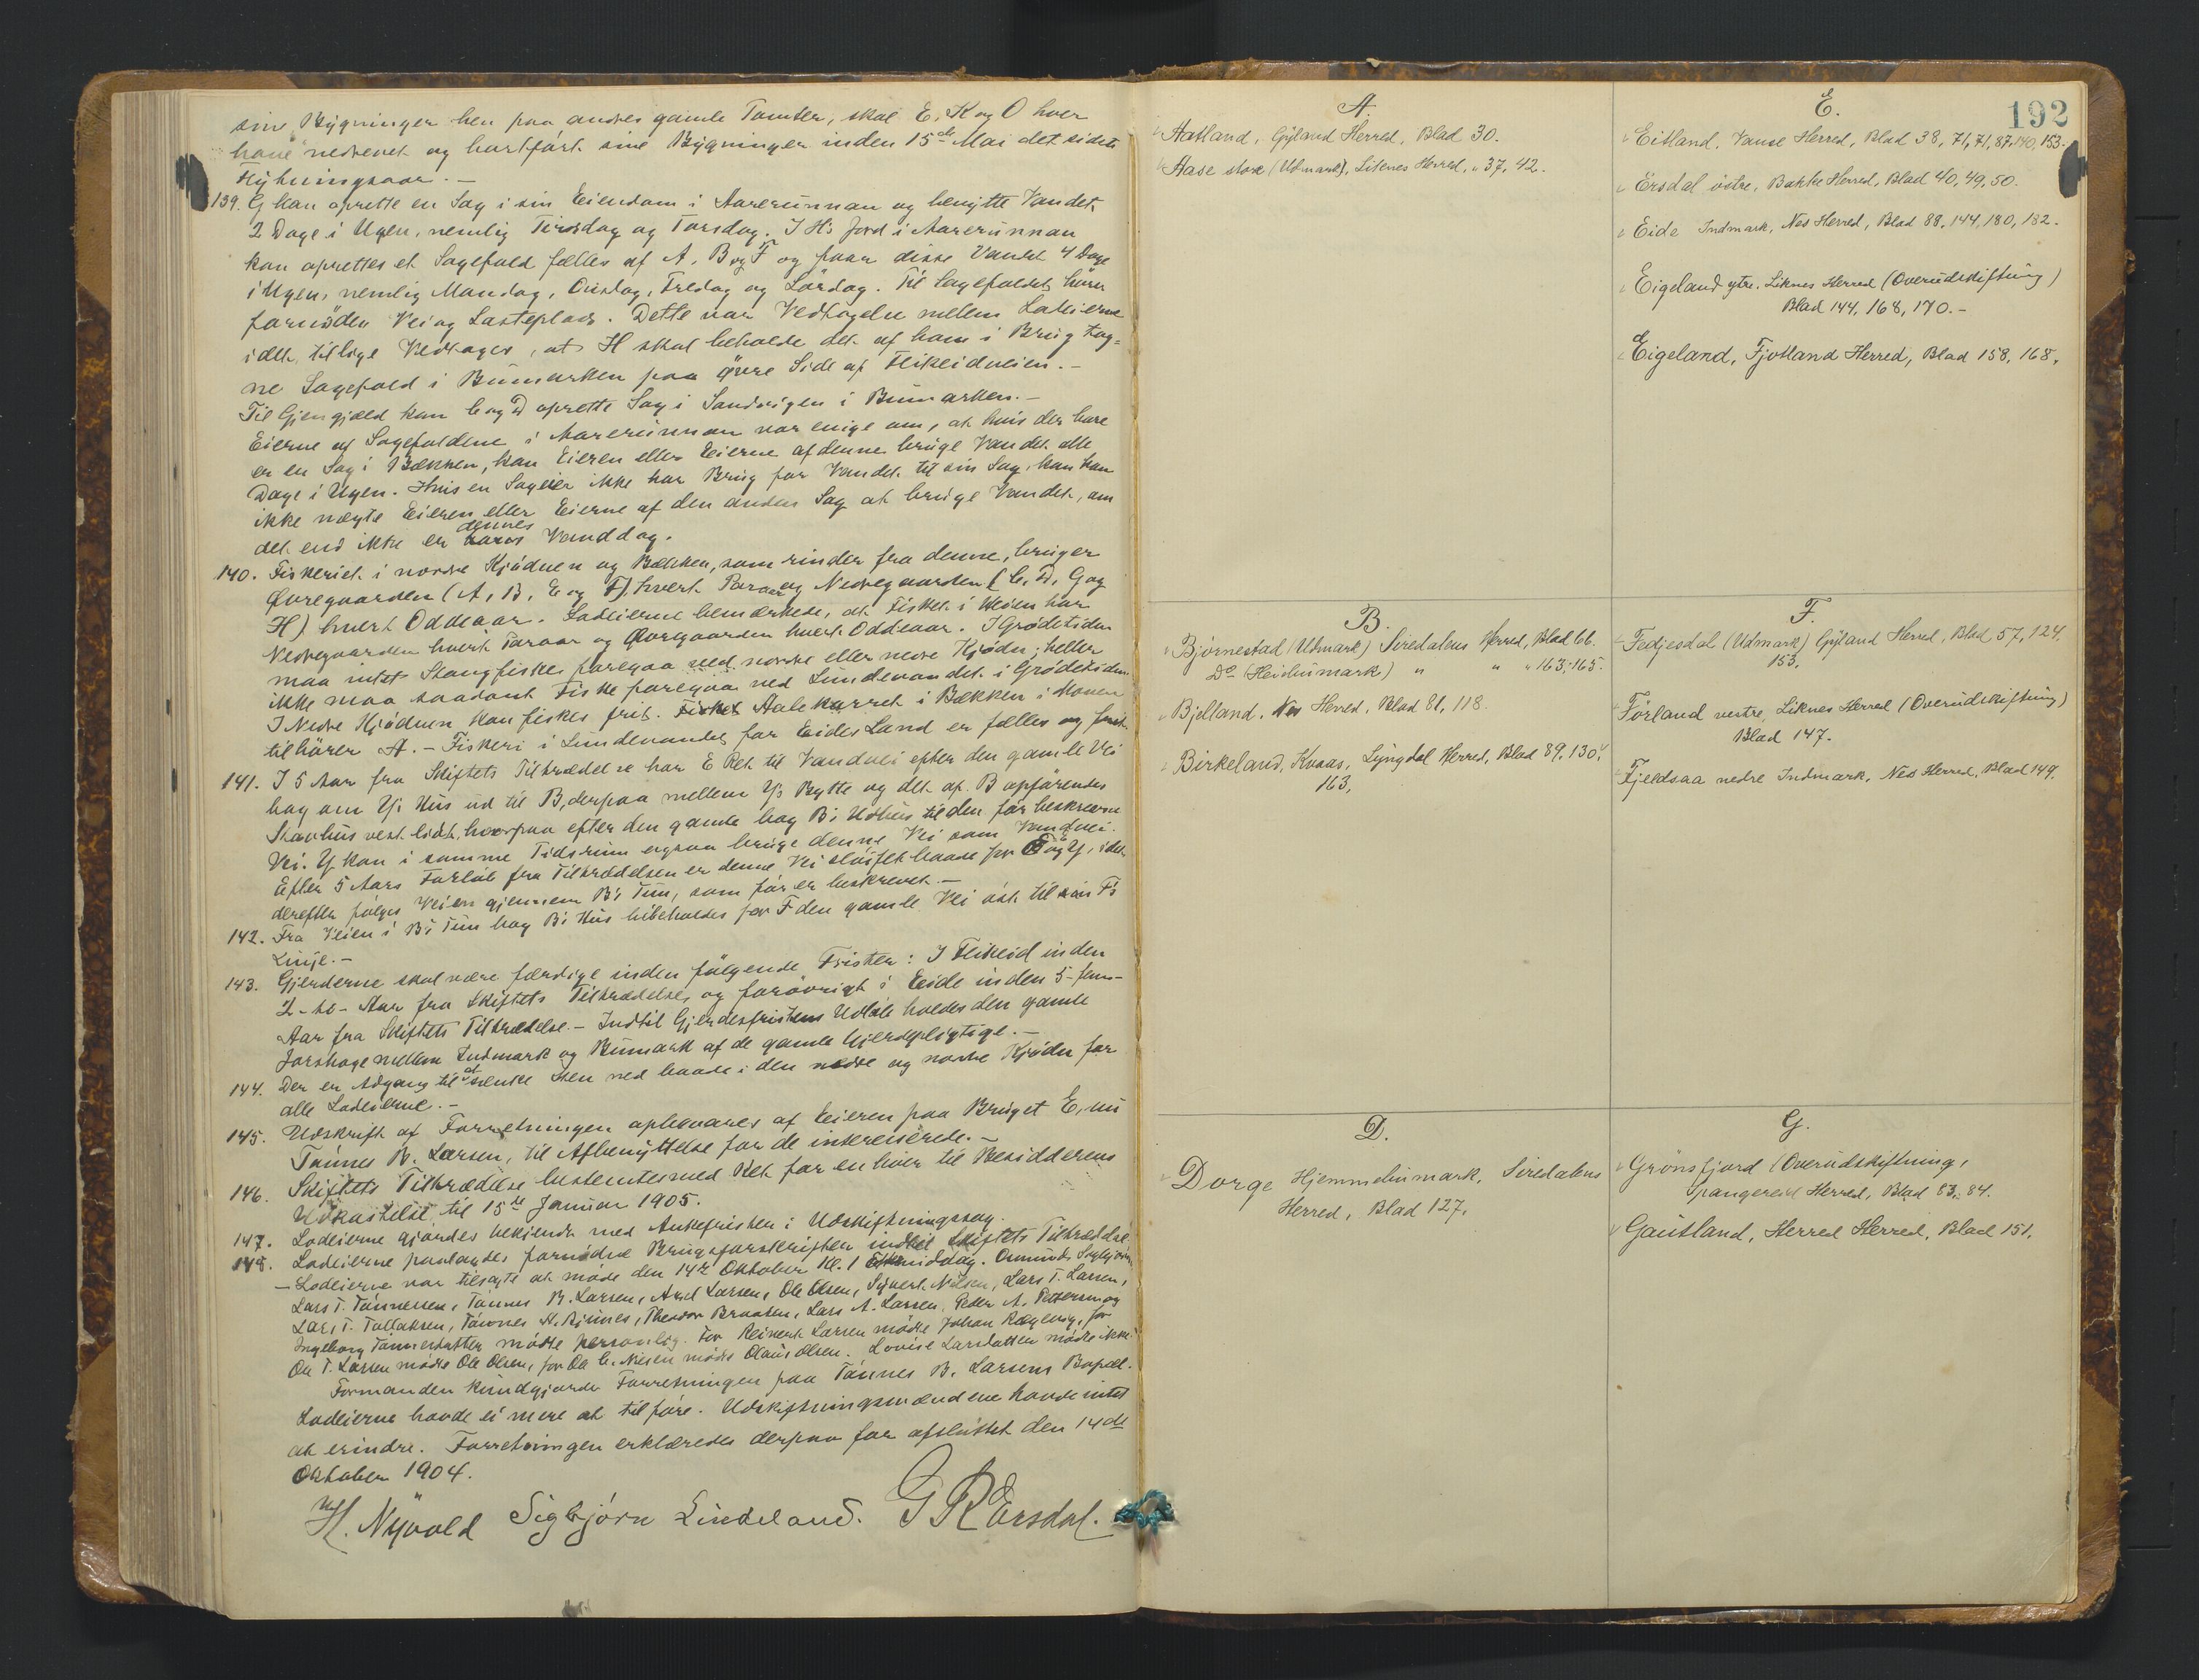 sine Bygninger hen paa andres gamle Tomter, skal E, K og O hver
have nedrevet og bortført sine Bygninger inden 15de Mai det sidste
Flytningsaar. -
139. G kan oprette en Sag i sin Eiendom i Aarerunnan og benytte Vandet
2 Dage i Ugen, nemlig Tirsdag og Torsdag. I H's Jord i Aarerunnan
kan oprettes et Sagefald fælles af A, B og F og faar disse Vandet 4 Dage
i Ugen, nemlig Mandag, Onsdag, Fredag og Lørdag. Til Sagefaldet hører
fornøden Vei og Lasteplads. Dette var Vedtagelse mellem Lodeierne
idet tillige Vedtages, at H skal beholde det af ham i Brug tag-
ne Sagefald i Bumarken paa øvre Side af Flikeidveien. -
Til Gjengjæld kan C og D oprette Sag i Sandvigen i Bumarken. -
Eierne af Sagefaldene i Aarerunnan var enige om, at hvis der bare
er en Sag i Bækken, kan Eieren eller Eierne af denne bruge Vandet alle
Dage i Ugen. Hvis en Sageier ikke har Brug for Vandet til sin Sag, kan han
ikke nægte Eieren eller Eierne af den anden Sag at bruge Vandet, om
det end ikke er dennes Vanddag.
140. Fiskeriet i nordre Kjødnen og Bækken, som rinder fra denne, bruger
Øvregaarden (A, B, E og F) hvert Paraar og Nedregaarden (C, D, G og
H) hvert Oddeaar. Lodeierne bemærkede, at Fisket i Veien har
Nedregaarden hvert Paraar og Øvregaarden hvert Oddeaar. I Grødetiden
maa intet Stangfiske foregaa ved nordre eller nedre Kjødn; heller
ikke maa saadant Fiske foregaa ved Lundevandet i Grødetiden.
I Nedre Kjødnen kan fiskes frit. Aalekarret i Bækken i Moven
tilhører A. - Fiskeri i Lundevandet for Eides Land er fælles og frit.
141. I 5 Aar fra Skiftets Tiltrædelse har E Ret til Vandvei efter den gamle Vei
bag om Y's Hus ud til B, derpaa mellem Y's Bytte og det af B opførendes
Stavhus vest lidt, hvorpaa efter den gamle bag B's Udhus til den før beskrevne
Vei. Y kan i samme Tidsrum ogsaa bruge denne Vei som Vandvei.
Efter 5 Aars Forløb fra Tiltrædelsen er denne Vei sløifet baade for E og Y, idet
derefter følges Veien gjennem B's Tun, som før er beskrevet. -
142. Fra Veien i B's Tun bag B's Hus bibeholdes for F den gamle Vei øst til F's
Linje. -
143. Gjerderne skal være færdige inden følgende Frister: I Flikeid inden
2 - to - Aar fra Skiftets Tiltrædelse, og forøvrigt i Eide inden 5 - fem -
Aar fra Skiftets Tiltrædelse. - Indtil Gjerdesfristens Udløb holdes den gamle
Jordhage mellem Indmark og Bumark af de gamle Gjerdepligtige. -
144. Der er Adgang til at sænke Sten ned baade i den nedre og nordre Kjødn for
alle Lodeierne. -
145. Udskrift af Forretningen opbevares af Eieren paa Bruget E, nu
Tønnes B. Larsen, til Afbenyttelse for de interesserede. -
146. Skiftets Tiltrædelse bestemtes med Ret for enhver til Besidderens
Udkastelse til 15de Januar 1905.
147. Lodeierne gjordes bekjendt med Ankefristen i Udskiftningssag.
148. Lodeierne paalagdes fornødne Brugsforskrifter indtil Skiftets Tiltrædelse.
- Lodeierne var tilsagte at møde den 14de Oktober Kl. 1 Eftermiddag.
Lars T. Tønnessen, Tønnes B. Larsen, Axel Larsen, Ole Olsen, Sivert Nilsen, Lars T. Larsen,
Lars T. Tallaksen, Tønnes A. Rjunes, Theodor Braaten, Lars A. Larsen, Peder A. Pettersen og
Ingeborg Tønnesdatter mødte personlig. For Reinert Larsen mødte Johan Rægevig, for
Ole T. Larsen mødte Ole Olsen, for Ole C. Niesen mødte Olaus Olsen. Lovise Larsdatter mødte ikke.
Formanden kundgjorde Forretningen paa Tønnes B. Larsens Bopæl.
Lodeierne havde ei mere at tilføre. Udskiftningsmændene havde intet
at erindre. Forretningen erklæredes derpaa for afsluttet den 14de
Oktober 1904.
H. Nyvold Sigbjørn Lindeland. G R Ersdal.
192
A.
Aatland, Gyland Herred, Blad 30.
Aase store (Udmark), Liknes Herred, " 37, 42.
E.
Eitland, Vanse Herred, Blad 38, 71, 71, 87, 140, 153.
Ersdal østre, Bakke Herred, Blad 40, 49, 50.
Eide Indmark, Nes Herred, Blad 88, 144, 180, 182.
Eigeland ytre, Liknes Herred (Overudskiftning)
Blad 144, 168, 170. -
Eigeland, Fjotland Herred, Blad 158, 168.
B.
Bjørnestad (Udmark) Siredalens Herred, Blad 66.
Do (Heiebumark) " " " 163, 165.
Bjelland, Nes Herred, Blad 81, 118.
Birkeland, Kvaas, Lyngdal Herred, Blad 89, 130,
163,
F.
Fedjesdal (Udmark) Gyland Herred, Blad 57, 124,
153.
Førland vestre, Liknes Herred (Overudskiftning)
Blad 147.
Fjeldsaa nedre Indmark, Nes Herred, Blad 149.
D.
Dorge Hjemmebumark, Siredalens
Herred, Blad 127.
G.
Grønsfjord (Overudskiftning,
Spangereid Herred, Blad 83, 84.
Gautland, Herred Herred, Blad 151.